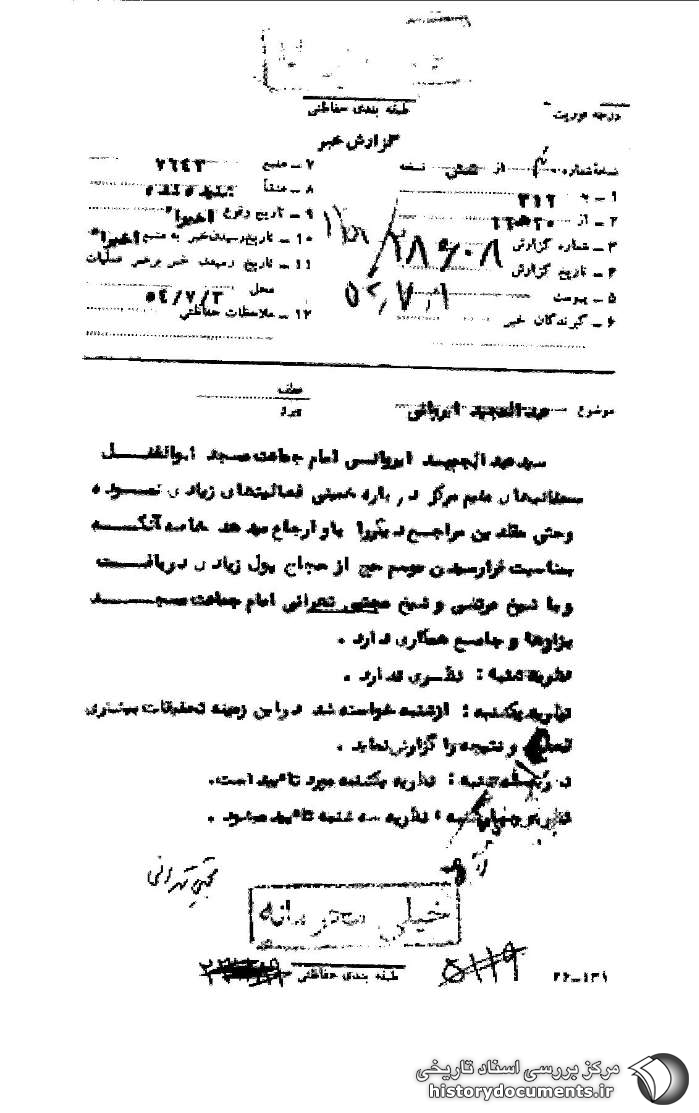 طبقه بندی حفاظتی
درجه فوریت
گزارش خبر
نسخه شماره از نسخه
۱ – به ۳۱۲
۲ – از
۳ – شماره گزارش
۴ – تاریخ گزارش
۵ – پیوست
۶ – گیرندگان خبر
۷ – منبع ۷۶۴۳
۸ – منشأ شنبه
۹ – تاریخ وقوع اخیرا"
۱۰ – تاریخ رسیدن خبر به منبع اخیرا"
۱۱ – تاریخ رسیدن خبر برهبر عملیات
محل ۵۴/۷/۲
۱۲ – ملاحظات حفاظتی
موضوع عبدالمجید ایروانی
عطف
پیرو
سیدعبدالمجید ایروانی امام جماعت مسجد ابوالفضل
مقیم مرکز درباره خمینی فعالیتهای زیادی نموده
وحتی مقلدین مراجع دیگررا باو ارجاع میدهد خاصه آنکه
بمناسبت فرارسیدن موسم حج از حجاج پول زیادی دریافت
و با شیخ مرتضی و شیخ مجتبی تهرانی امام جماعت مسجد
بزازها و جامع همکاری دارد .
نظریه شنبه : نظری ندارد .
نظریه یکشنبه : ازشنبه خواسته شد دراین زمینه تحقیقات بیشتری
و نتیجه را گزارش نماید .
نظریه یکشنبه مورد تائید است.
نظریه چهارشنبه : نظریه سه شنبه تائید میشود .
مجتبی تهرانی
خیلی محرمانه
طبقه بندی حفاظتی
۵۱۱۹
۲۶–۱۳۱
مرکز بررسی اسناد تاریخی
historydocuments.ir